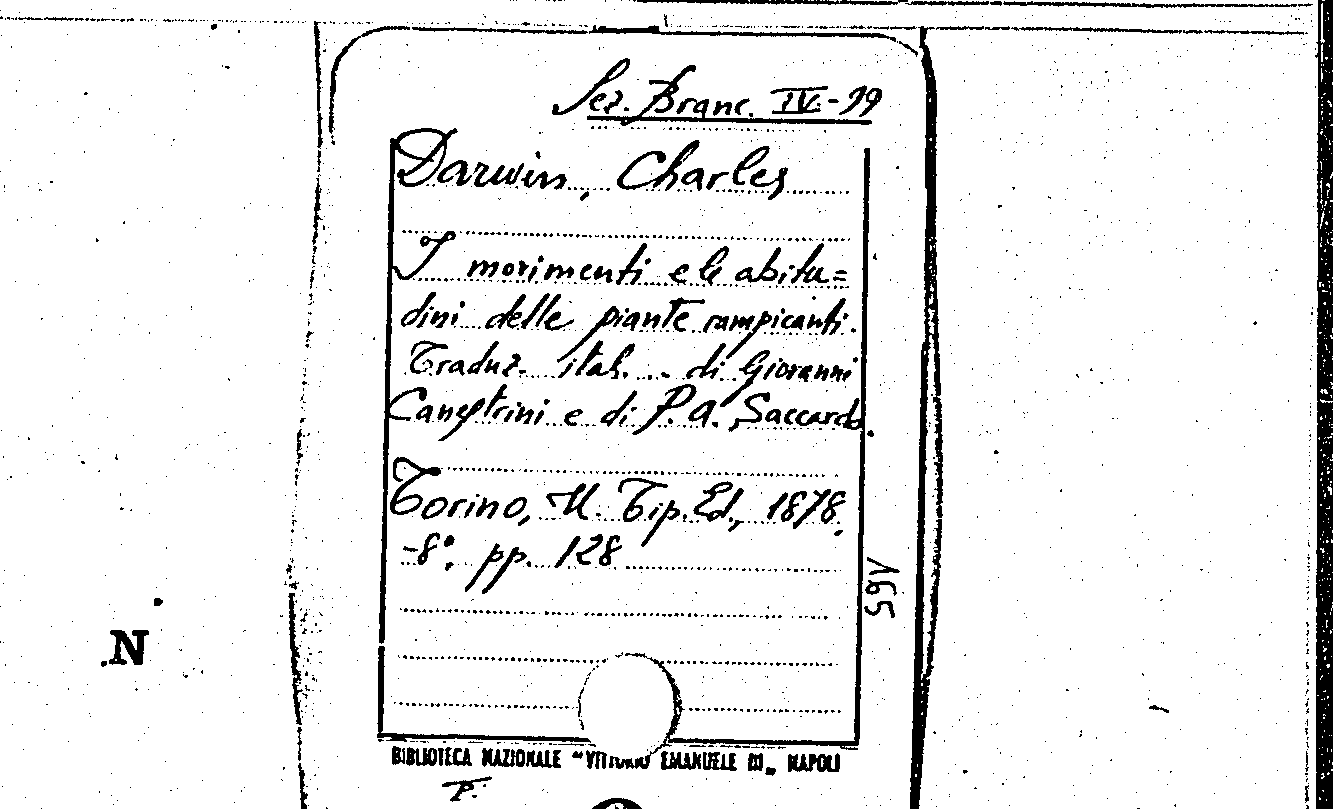 Sez. Branc. IV.-99
Darwin, Charles
I movimenti e le abitu=
dini delle piante rampicanti.
Traduz. ital. .. di Giovanni
Canestrini e di P.A. Saccardo.
Torino, U. Tip. Ed., 1878.
-8°. pp. 128
165
N
BIBLIOTECA NAZIONALE "VITTORIO EMANUELE III„ NAPOLI
P.